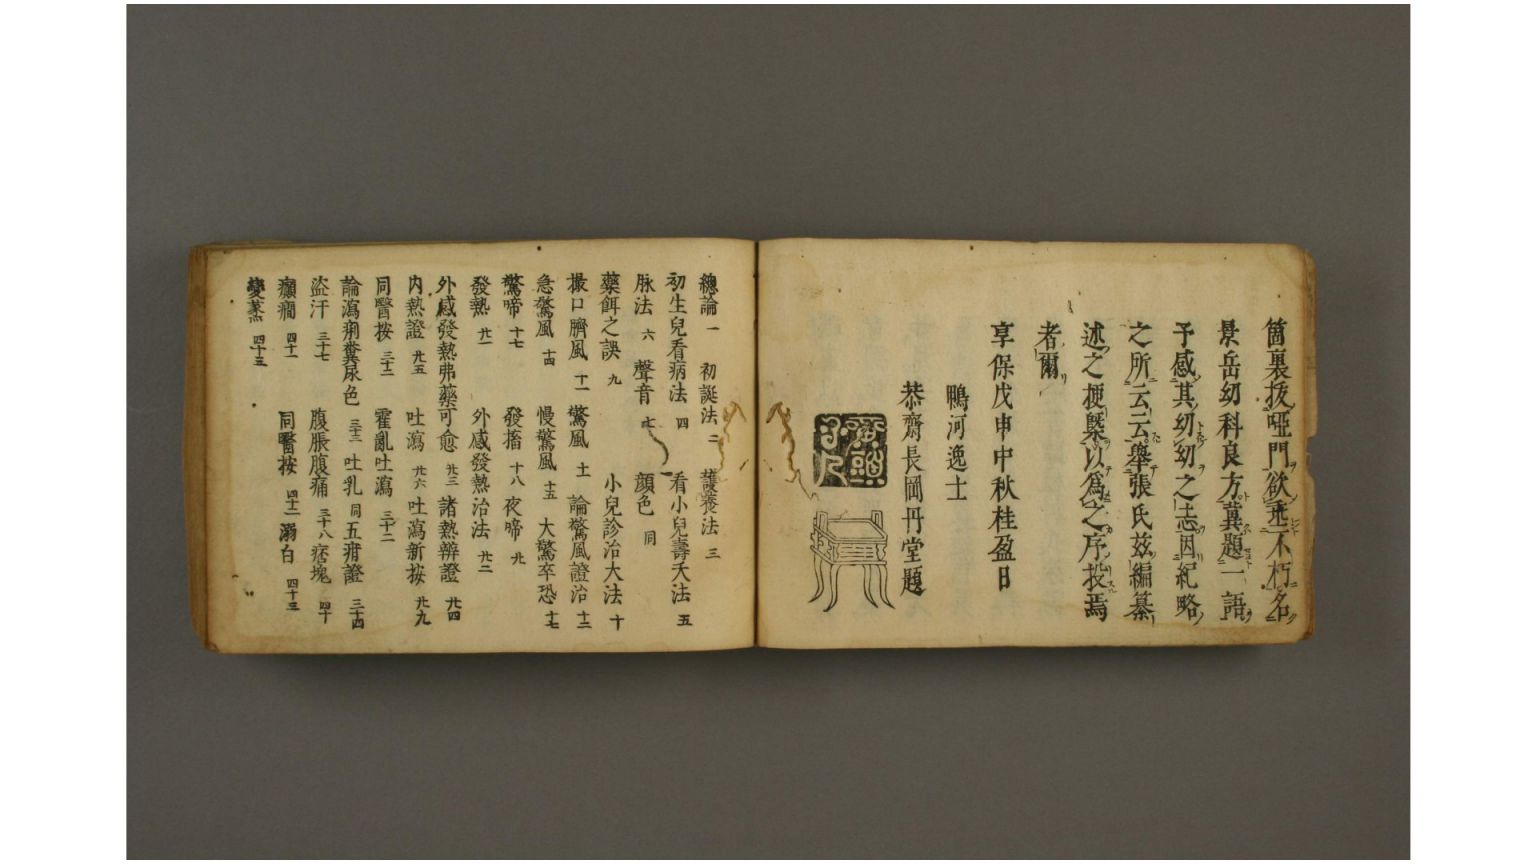 箇裏扳啞門欲垂不朽名
景岳幼科良方冀題一語
予感其幼幼之志因紀略
之所云云舉張氏茲編纂
述之梗槩以爲之序投焉
者爾
享保戊申中秋桂盈日
鴨河逸士
恭齋長岡丹堂題
總論 一 初誕法 二 護養法 三
初生兒看病法 四 看小兒壽夭法 五
脉法 六 聲音 七 顔色 同
藥餌之誤 九 小兒診治大法 十
撮口臍風 十一 驚風 十一 論驚風證治 十二
急驚風 十四 慢驚風 十五 大驚卒恐 十七
驚啼 十七 發搐 十八 夜啼 廿
發熱 廿一 外感發熱治法 廿二
外感發熱弗藥可愈 廿三 諸熱辨證 廿四
内熱證 廿五 吐瀉 廿六 吐瀉新按 廿九
同醫按 三十一 霍亂吐瀉 三十二
論瀉痢糞尿色 三十三 吐乳 同 五疳證 三十四
盗汗 三十七 腹脹腹痛 三十八 痞塊 四十
癲癇 四十一 同醫按 四十二 溺白 四十三
變蒸 四十五